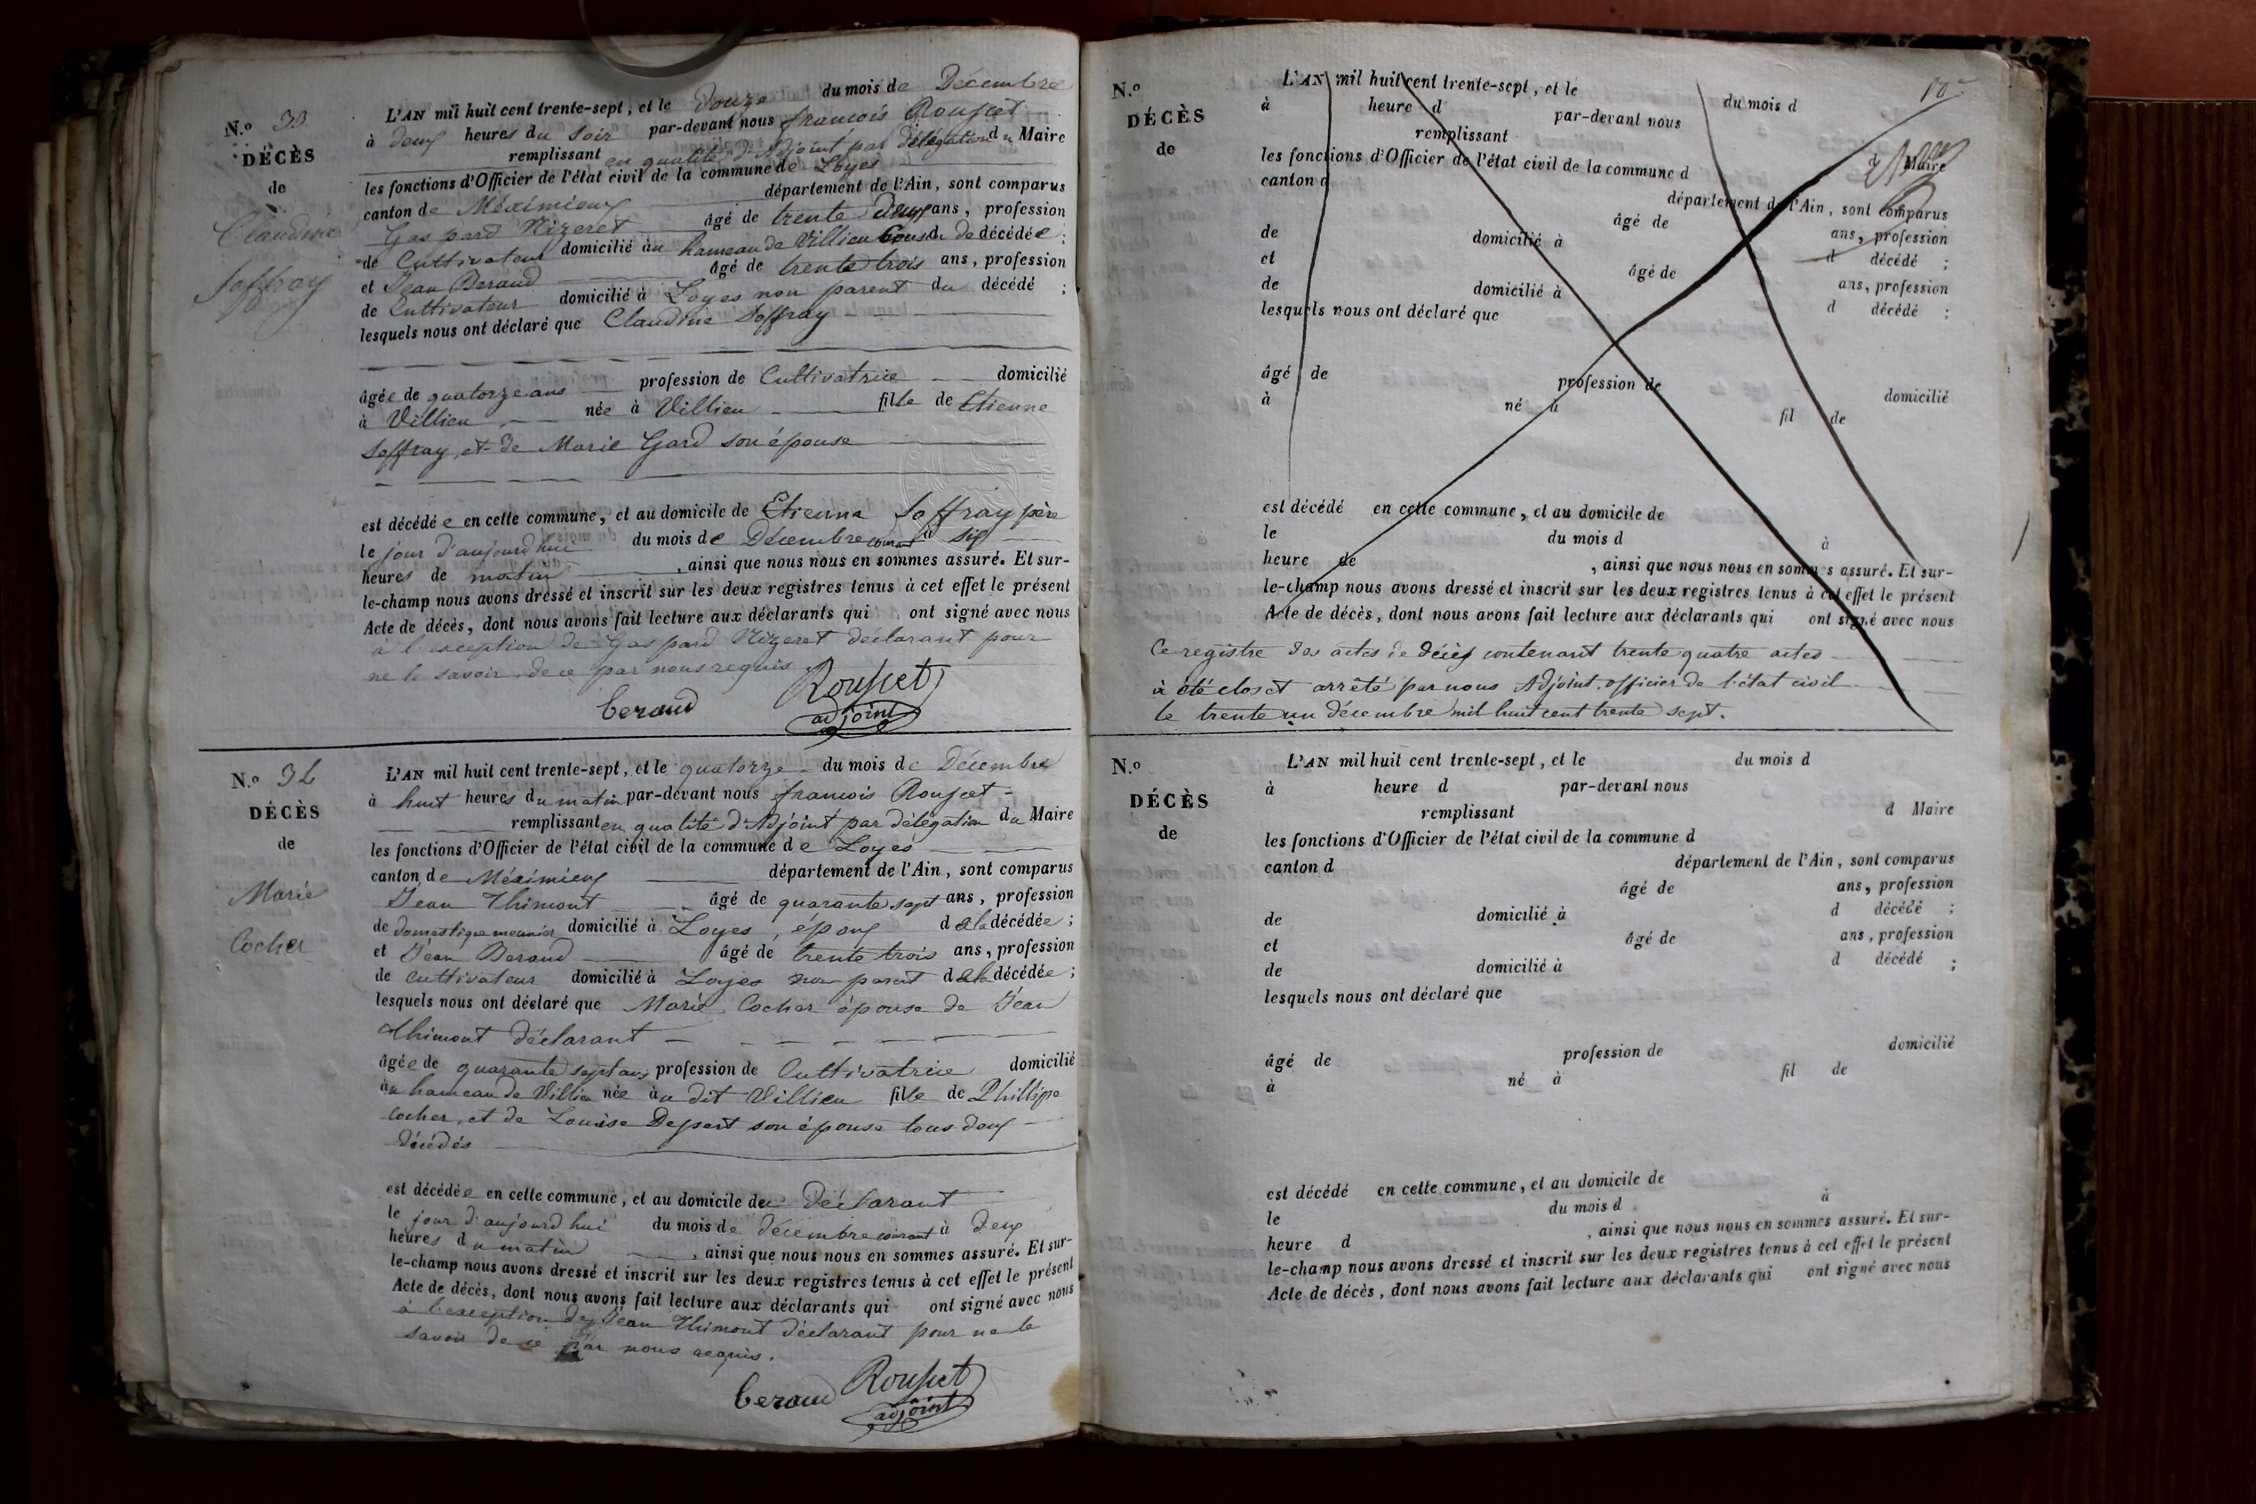 N.º 33
DÉCÈS
de
Claudine
Soffray
L'AN mil huit cent trente-sept, et le Douze du mois de Décembre
à deux heures du Soir par-devant nous françois Rousset
remplissant en qualité d'Adjoint par délégation du Maire
les fonctions d'Officier de l'état civil de la commune de Loyes
canton de Méximieux département de l'Ain, sont comparus
Gaspard Nizeret âgé de trente deux ans, profession
de Cultivateur domicilié au hameau de Villieu Cousin de décédée ;
et Jean Beraud âgé de trente trois ans, profession
de Cultivateur domicilié à Loyes non parent du décédé ;
lesquels nous ont déclaré que Claudine Soffray
âgée de quatorze ans profession de Cultivatrice domicilié
à Villieu née à Villieu fille de Etienne
Soffray, et de Marie Gard son épouse
est décédée en cette commune, et au domicile de Etienne Soffray père
le jour d'aujourd'hui du mois de Décembre courant à six
heures de matin, ainsi que nous nous en sommes assuré. Et sur-
le-champ nous avons dressé et inscrit sur les deux registres tenus à cet effet le présent
Acte de décès, dont nous avons fait lecture aux déclarants qui ont signé avec nous
à l'exception de Gaspard Nizeret déclarant pour
ne le savoir de ce par nous requis
beraud Rousset
adjoint
N.º 34
DÉCÈS
de
Marie
Cocher
L'AN mil huit cent trente-sept, et le quatorze du mois de Décembre
à huit heures du matin par-devant nous françois Rousset
remplissant en qualité d'Adjoint par délégation du Maire
les fonctions d'Officier de l'état civil de la commune de Loyes
canton de Méximieux département de l'Ain, sont comparus
Jean Thimont âgé de quarante sept ans, profession
de domestique meunier domicilié à Loyes, époux de la décédée ;
et Jean Beraud âgé de trente trois ans, profession
de cultivateur domicilié à Loyes non parent de la décédée ;
lesquels nous ont déclaré que Marie Cocher épouse de Jean
Thimont déclarant
âgée de quarante sept ans profession de Cultivatrice domicilié
au hameau de Villieu née au dit Villieu fille de Phillipe
Cocher, et de Louise Depert son épouse tous deux
décédés
est décédée en cette commune, et au domicile du Déclarant
le jour d'aujourd'hui du mois de décembre courant à deux
heures du matin, ainsi que nous nous en sommes assuré. Et sur-
le-champ nous avons dressé et inscrit sur les deux registres tenus à cet effet le présent
Acte de décès, dont nous avons fait lecture aux déclarants qui ont signé avec nous
à l'exception de Jean Thimont déclarant pour ne le
savoir de ce par nous requis.
beraud Rousset
adjoint
N.º
DÉCÈS
de
L'AN mil huit cent trente-sept, et le du mois d
à heure d par-devant nous
remplissant d Maire
les fonctions d'Officier de l'état civil de la commune d
canton d département de l'Ain, sont comparus
âgé de ans, profession
de domicilié à d décédé ;
et âgé de ans, profession
de domicilié à d décédé ;
lesquels nous ont déclaré que
âgé de profession de domicilié
à né à fil de
est décédé en cette commune, et au domicile de
le du mois d à
heure de , ainsi que nous nous en sommes assuré. Et sur-
le-champ nous avons dressé et inscrit sur les deux registres tenus à cet effet le présent
Acte de décès, dont nous avons fait lecture aux déclarants qui ont signé avec nous
Ce registre des actes de décès contenant trente quatre actes
à été clos et arrêté par nous Adjoint officier de l'état civil
le trente un décembre mil huit cent trente sept.
N.º
DÉCÈS
de
L'AN mil huit cent trente-sept, et le du mois d
à heure d par-devant nous
remplissant d Maire
les fonctions d'Officier de l'état civil de la commune d
canton d département de l'Ain, sont comparus
âgé de ans, profession
de domicilié à d décédé ;
et âgé de ans, profession
de domicilié à d décédé ;
lesquels nous ont déclaré que
âgé de profession de domicilié
à né à fil de
est décédé en cette commune, et au domicile de
le du mois d à
heure d , ainsi que nous nous en sommes assuré. Et sur-
le-champ nous avons dressé et inscrit sur les deux registres tenus à cet effet le présent
Acte de décès, dont nous avons fait lecture aux déclarants qui ont signé avec nous